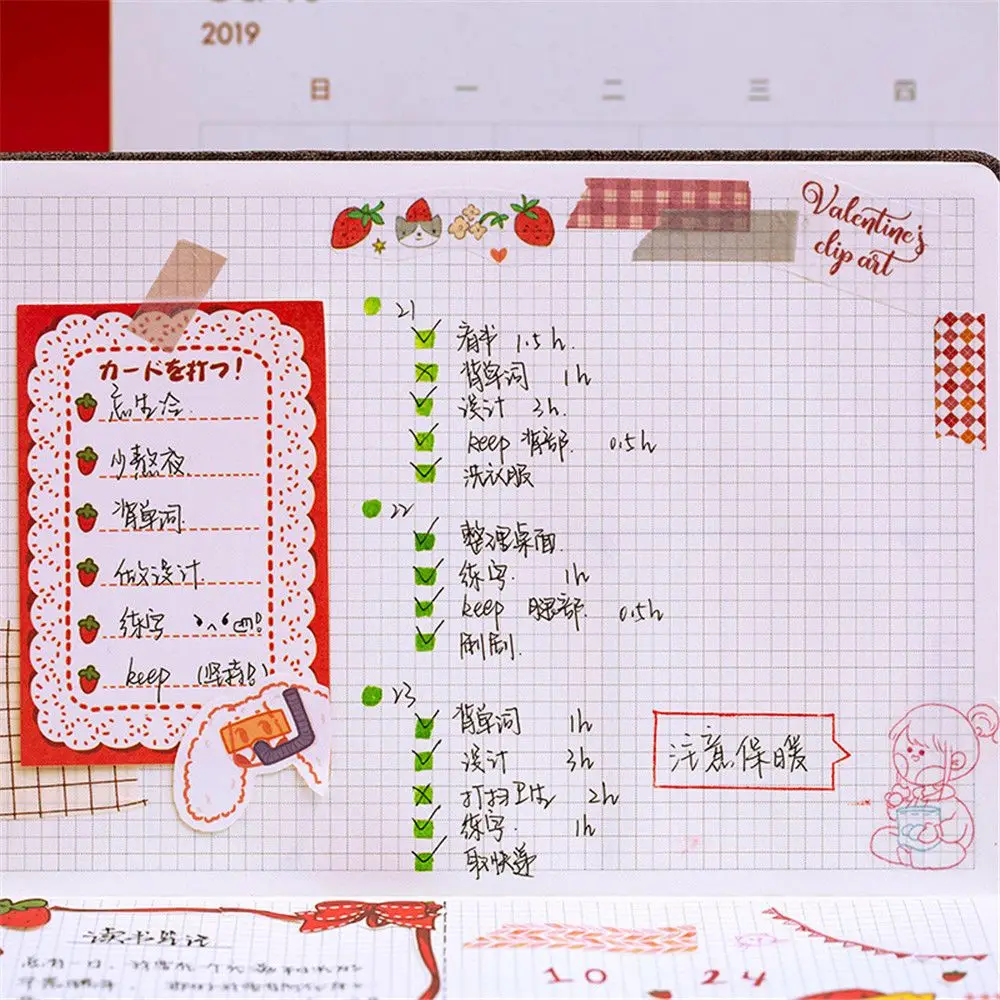 2019
日 一 二 三 四
Valentine's
clip art
カードを打つ!
忌生冷.
少熬夜.
背单词.
做设计.
练字
keep (坚持!)
21
看书 1.5h.
背单词 1h
设计 3h.
keep 背部. 0.5h
洗衣服
22
整理桌面.
练字. 1h
keep 腿部. 0.5h
刷剧.
23
背单词 1h
设计 3h
打扫卫生 2h
练字. 1h
取快递
注意保暖
读书笔记
10 24